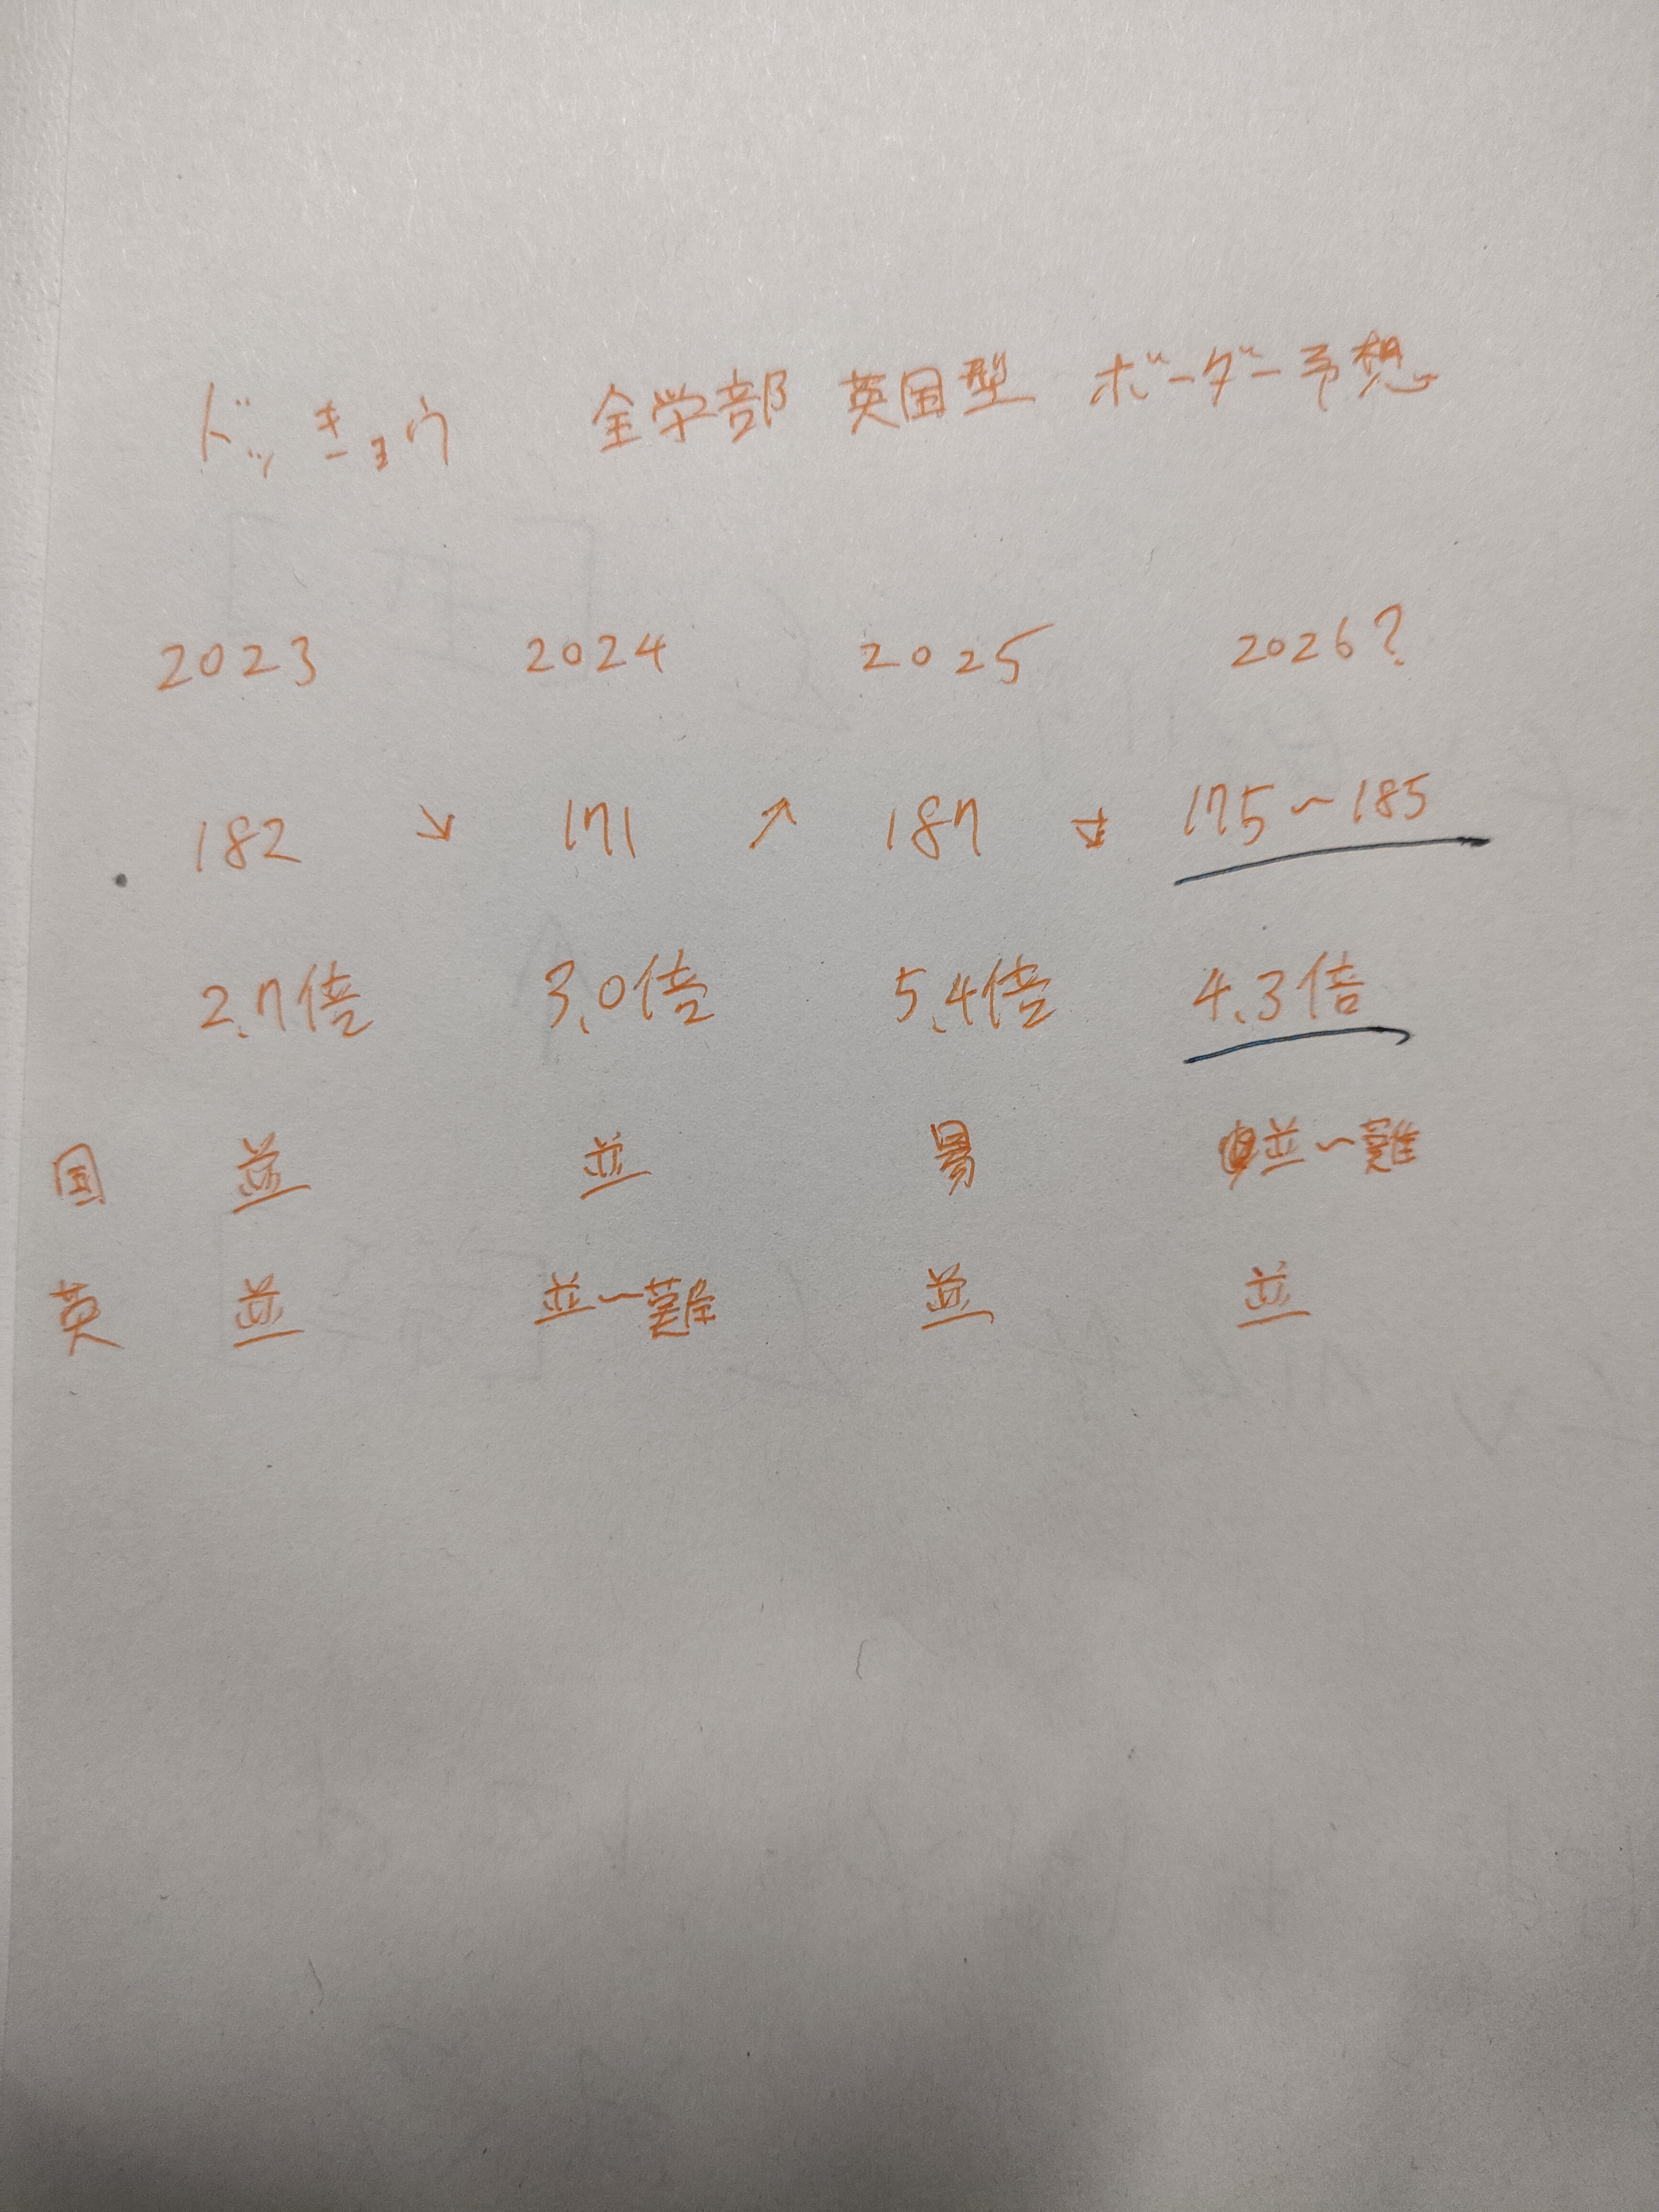 ドッキョウ 全学部 英国型 ボーダー予想
2023 2024 2025 2026?
182 ↘ 171 ↗ 187 ↘ 175~185
2.7倍 3.0倍 5.4倍 4.3倍
国 並 並 易 並~難
英 並 並~難 並 並